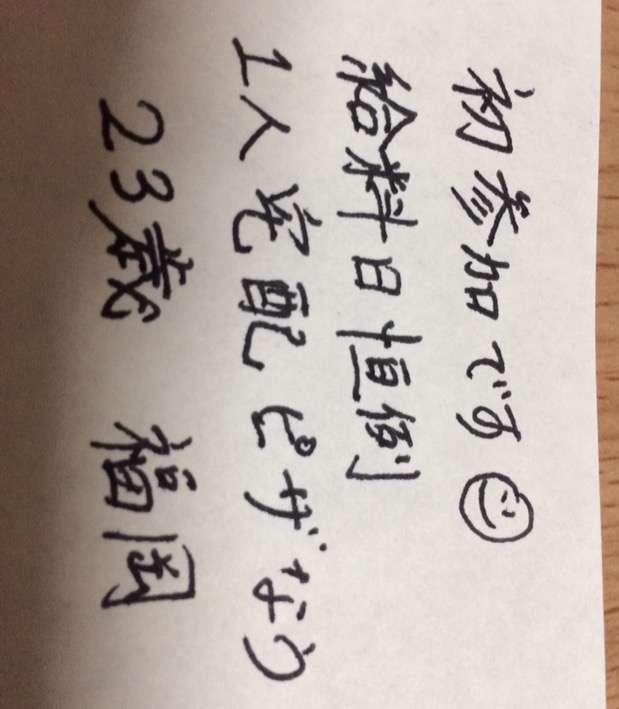 初参加です☺
給料日恒例
1人宅配ピザなう
23歳 福岡